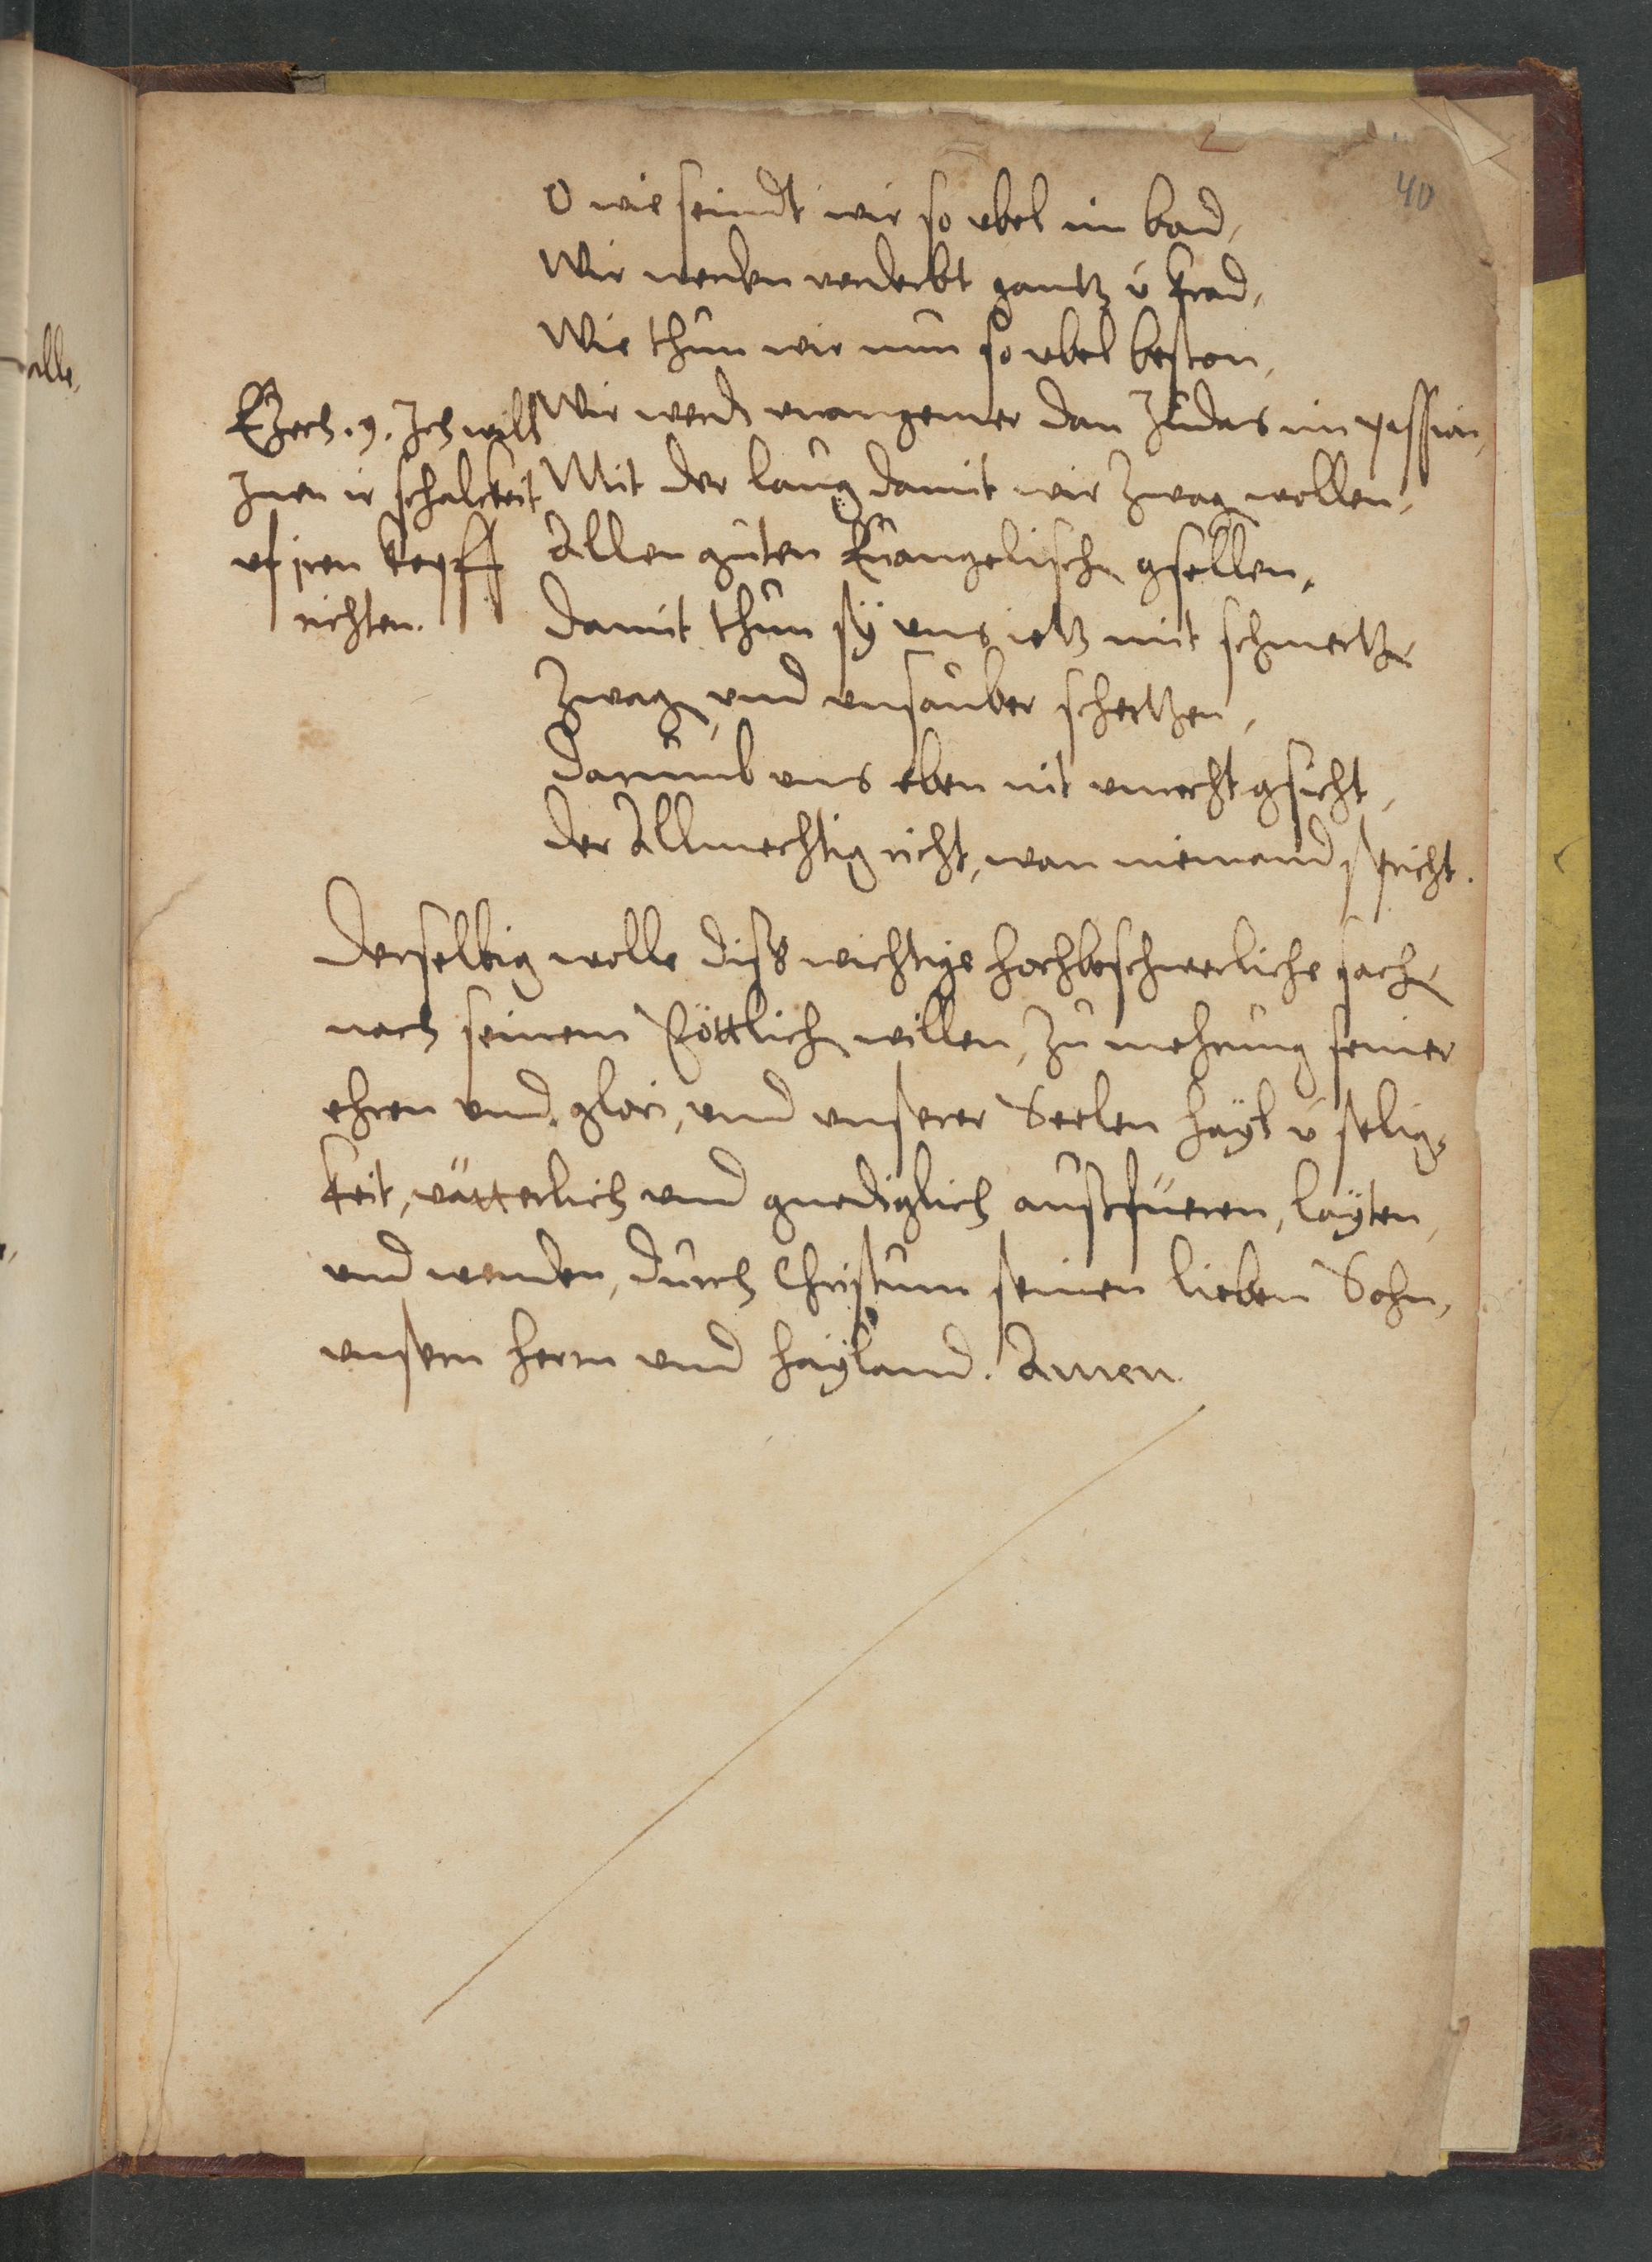 40
O wie seindt wir so vbel im bad,
Wir werden verderbt gantz v̄ krad,
Wie thun wir nun so vbel beston,
Wir werdē verangener dan Judas im passion,
Mit der laug damit wir zwagē wollen,
Allen guten Euangelischē gsellen,
Damit thun sÿ vns ietz mit schmertzē
Zwagē, vnd vnsauber schertzen,
Darumb vns eben nit vnrecht gsicht,
Der Allmechtig richt, wan niemand spricht.
Ezech. 9. Ich will
Inen ir schalckeit
vf iren kopff
richten.
Derselbig wolle diß wichtige hochbeschwerliche sachē
nach seinem Göttlichē willen, zu mehrung seiner
ehren vnd glori, vnd vnserer Seelen haÿl v̄ selig-
keit, vätterlich vnd gnediglich außfüeren, laÿten,
vnd wenden, durch Christum seinen lieben Sohn,
vnsern herrn vnd haÿland. Amen.
alle,